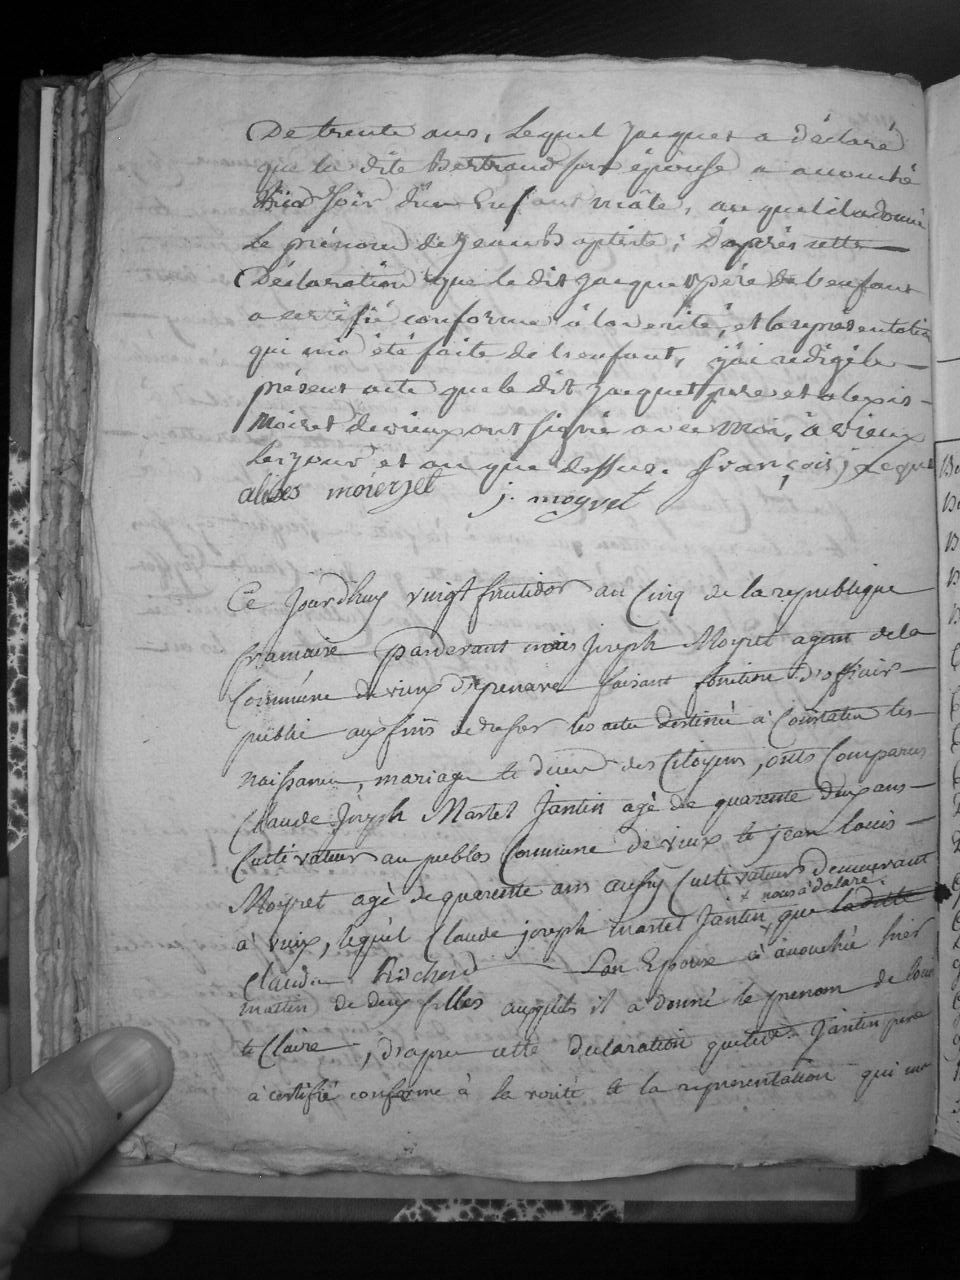 De trente ans, Lequel Jacquet a déclaré
que la dite Bertrand son épouse a accouché
hier soir d'un Enfant mâle, auquel il a donné
Le prénom de Jean Baptiste; D'après cette
Déclaration que le dit Jacquet père de l'enfant
a certifié conforme à la vérité, et la représentation
qui m'a été faite de l'enfant, j'ai rédigé le
présent acte que le dit Jacquet père et alexis
Moiret de vieux ont signé avec moi, à vieux
Le jour et an que dessus. françois jaque
alixes moieret j. moyret
Ce Jourdhuy vingt frutidor an Cinq de la republique
francaise pardevant mois Joseph Moyret agent de la
Commune de vieux d'izenave faisant fonction d'officier
public aux fins de dresser les acte destiné à Constater les
naissance, mariage et deces des Citoyens, onts Comparus
Claude Joseph Martel Jantin agé de quarente deux ans
Cultivateur au Commune de vieux et jean Louis
Moyret agé de quarente ans aussy Cultivateur demeurant
+ nous à déclaré
à vieux, lequel Claude joseph martel Jantin, que ladite
Claudine son Epouse à accouchée hier
mattin de deux filles auxquels il a donné le prenom de
et Claire, d'apres cette declaration que Jantin pere
à certifié conforme à la verité et la representation qui